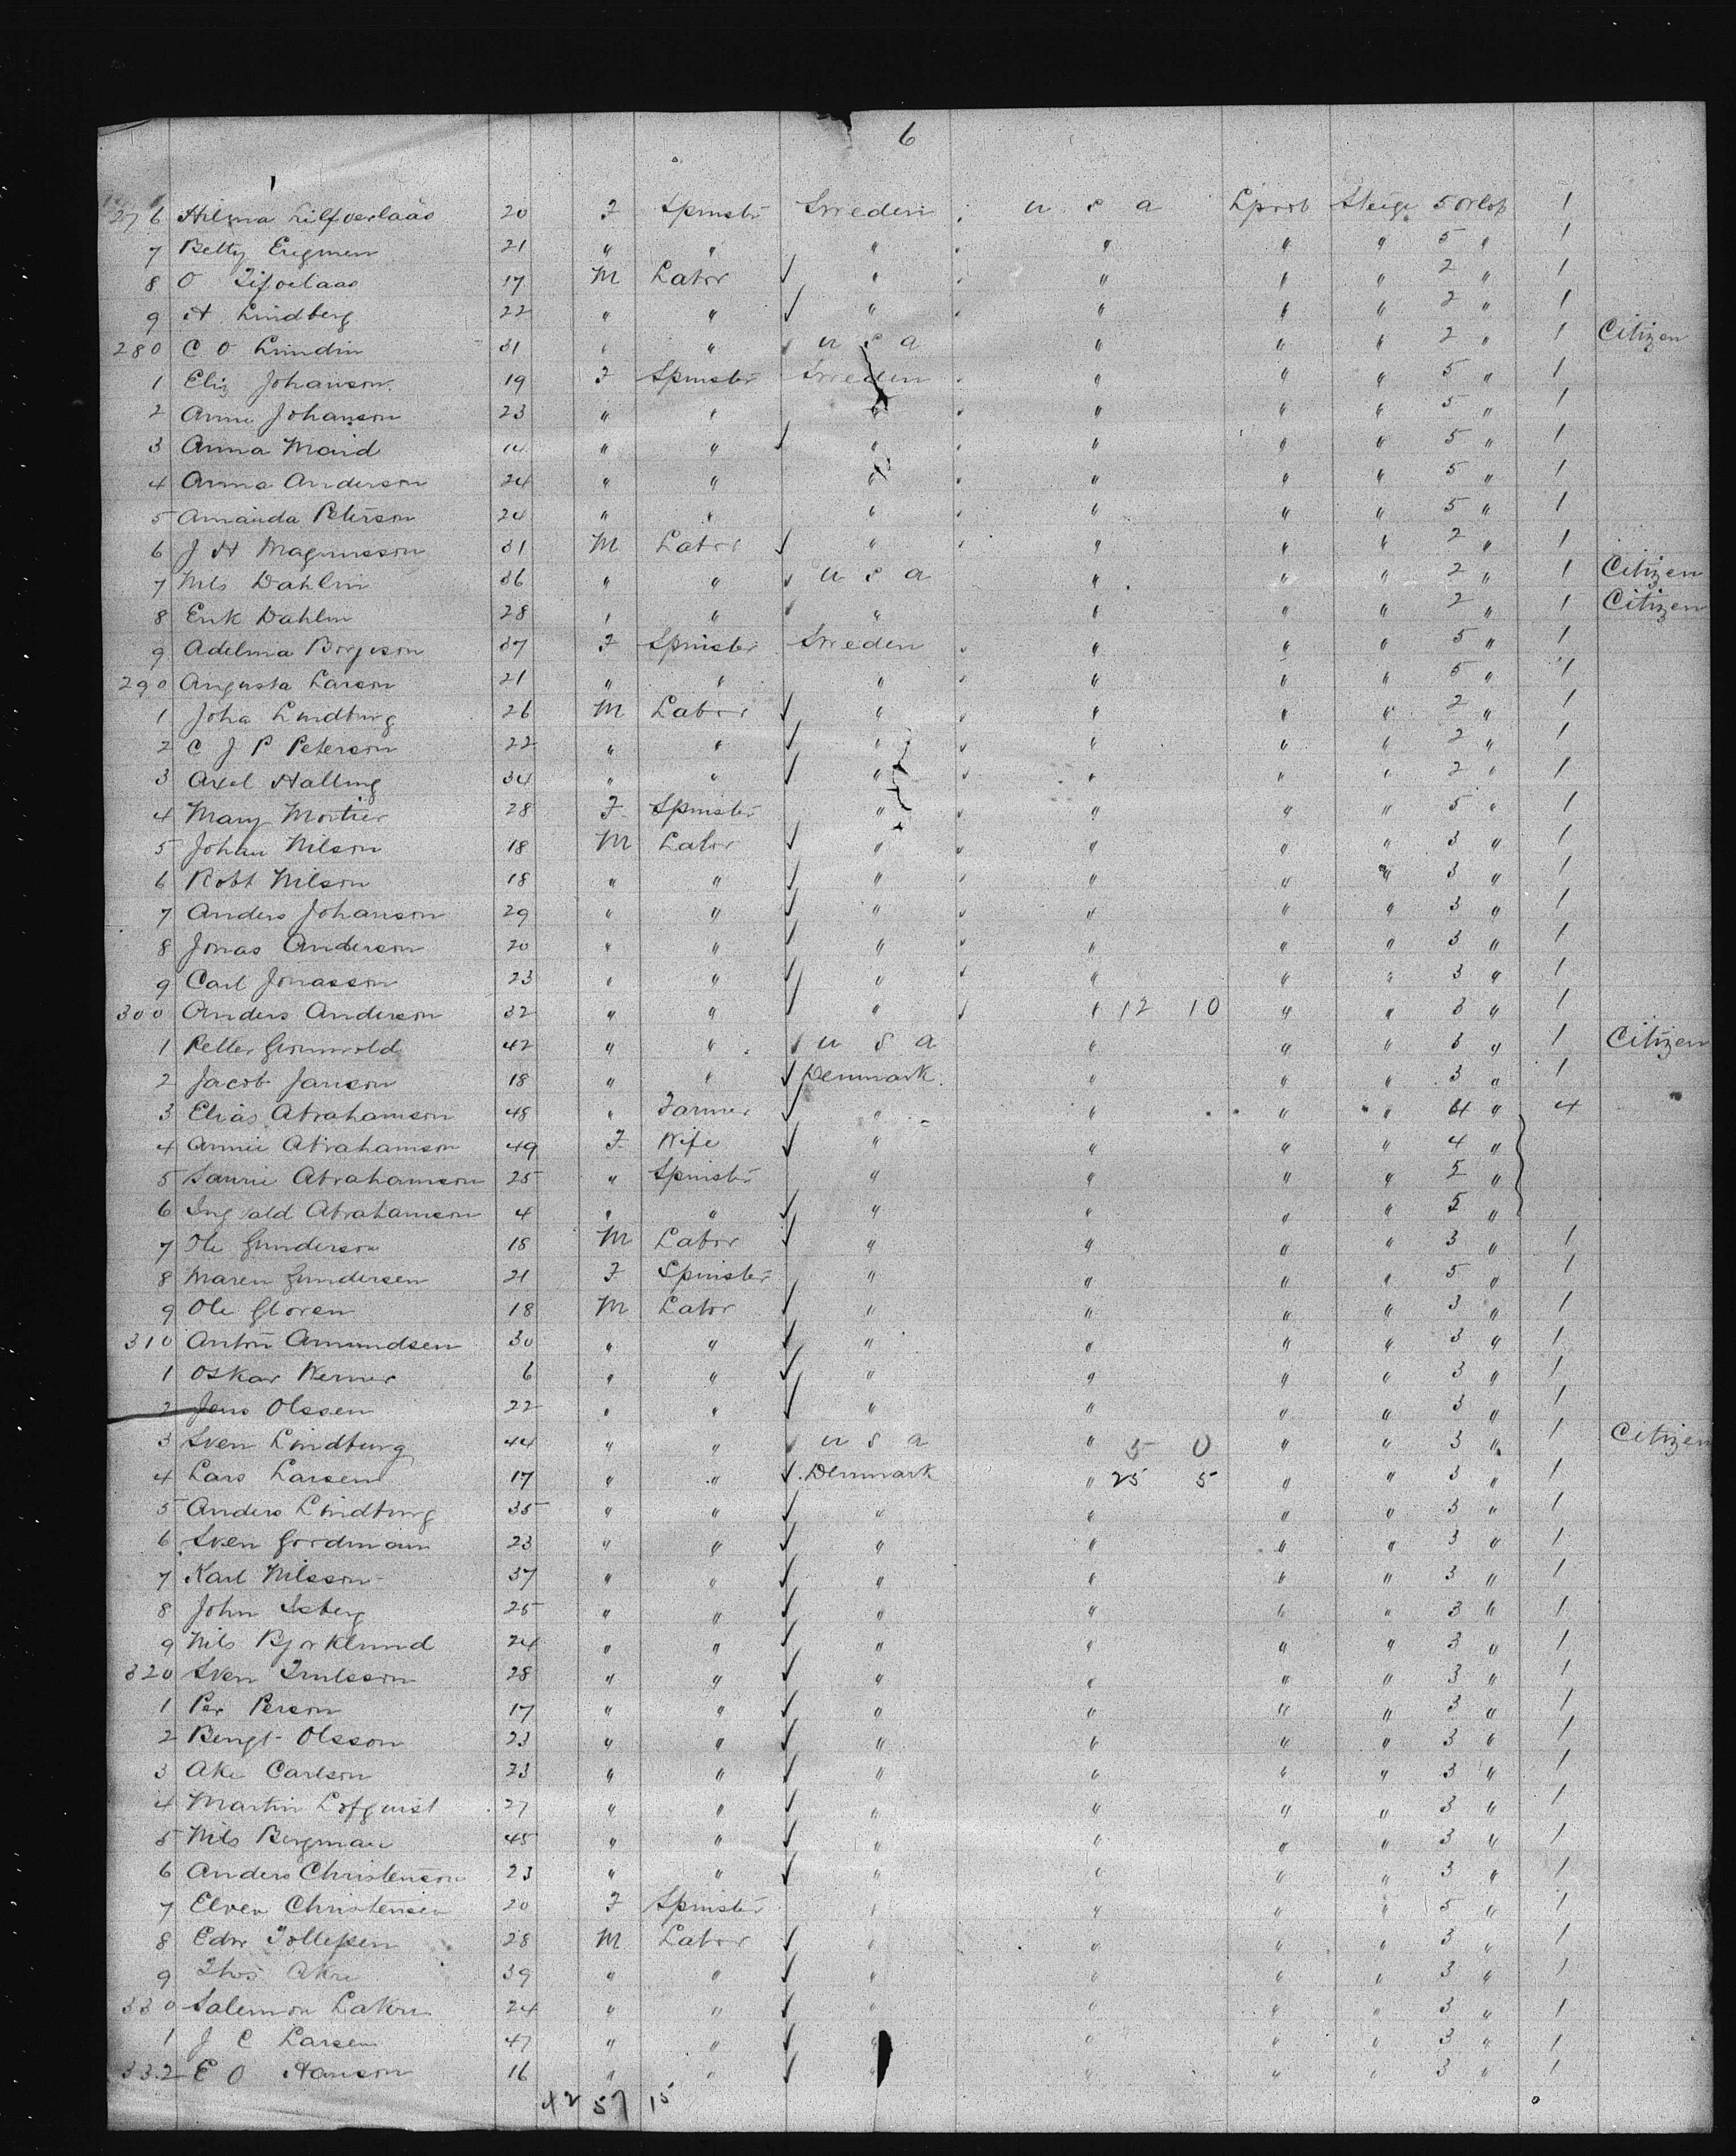 6
276 Hilma Lilfverlaas 20 F Spinstr Sweden U S A Lpool Steige 5 Orlop 1
7 Betty Engmen 21 " " " " " " 5 " 1
8 O 17 M Labor ✓ " " " " 2 " 1
9 A Lindberg 22 " " ✓ " " " " 2 " 1
280 C O Lundin 31 " " U S A " " " 2 " 1 Citizen
1 Eliz Johanson 19 F Spinster Sweden " " " 5 " 1
2 Anna Johanson 23 " " " " " " 5 " 1
3 Anna Maid 14 " " ✓ " " " " 5 " 1
4 Anna Anderson 24 " " " " " " 5 " 1
5 Amanda Peterson 24 " " " " " " 5 " 1
6 J H Magnusson 31 M Labor ✓ " " " " 2 " 1
7 Nils Dahlin 36 " " ✓ U S A " " " 2 " 1 Citizen
8 Erik Dahlin 28 " " ✓ " " " " 2 " 1 Citizen
9 Adelina Borjeson 37 F Spinster Sweden " " " 5 " 1
290 Augusta Larson 21 " " " " " " 5 " 1
1 Joha Lindburg 26 M Labor ✓ " " " " 2 " 1
2 C J P Peterson 22 " " ✓ " " " " 2 " 1
3 Axel Halling 34 " " ✓ " " " " 2 " 1
4 Mary Mortier 28 F Spinster " " " " 5 " 1
5 Johan Nilson 18 M Labor ✓ " " " " 3 " 1
6 Robt Nilson 18 " " ✓ " " " " 3 " 1
7 Anders Johanson 29 " " ✓ " " " " 3 " 1
8 Jonas Anderson 20 " " ✓ " " " " 3 " 1
9 Carl Jonasson 23 " " ✓ " " " " 3 " 1
300 Anders Anderson 32 " " ✓ " " 12 10 " " 3 " 1
1 Petter Gronwold 42 " " ✓ U S A " " " 3 " 1 Citizen
2 Jacob Janson 18 " " ✓ Denmark " " " 3 " 1
3 Elias Abrahamson 48 " Farmer ✓ " " " " 4 " 4
4 Annie Abrahamson 49 F Wife ✓ " " " " 4 "
5 Abrahamson 25 " Spinster " " " " 5 "
6 Ingvald Abrahamson 4 " " ✓ " " " " 5 "
7 Ole Gunderson 18 M Labor ✓ " " " " 3 " 1
8 Maren Gundersen 21 F Spinster " " " " 5 " 1
9 Ole Gloren 18 M Labor ✓ " " " " 3 " 1
310 Anton Amundsen 30 " " ✓ " " " " 3 " 1
1 Oskar Werner 6 " " ✓ " " " " 3 " 1
2 Jens Olssen 22 " " ✓ " " " " 3 " 1
3 Sven Lindburg 44 " " ✓ U S A " 5 0 " " 3 " 1 Citizen
4 Lars Larsen 17 " " ✓ Denmark " 25 5 " " 3 " 1
5 Anders Lindburg 35 " " ✓ " " " " 3 " 1
6 Sven Goodman 23 " " ✓ " " " " 3 " 1
7 Karl Nilsson 37 " " ✓ " " " " 3 " 1
8 John Isberg 25 " " ✓ " " " " 3 " 1
9 Nils Bjorklund 24 " " ✓ " " " " 3 " 1
320 Sven 28 " " ✓ " " " " 3 " 1
1 Per Person 17 " " ✓ " " " " 3 " 1
2 Bengt Olsson 23 " " ✓ " " " " 3 " 1
3 Ake Carlson 23 " " ✓ " " " " 3 " 1
4 Martin Lofquist 27 " " ✓ " " " " 3 " 1
5 Nils Bergman 45 " " ✓ " " " " 3 " 1
6 Anders Christenson 23 " " ✓ " " " " 3 " 1
7 Elven Christensen 20 F Spinster " " " " 5 " 1
8 Edw Tollefsen 28 M Labor ✓ " " " " 3 " 1
9 Thos Akre 39 " " ✓ " " " " 3 " 1
330 Salemon Lakon 24 " " ✓ " " " " 3 " 1
1 J C Larsen 47 " " ✓ " " " " 3 " 1
332 E O Hanson 16 " " ✓ " " " " 3 " 1
42 57 15